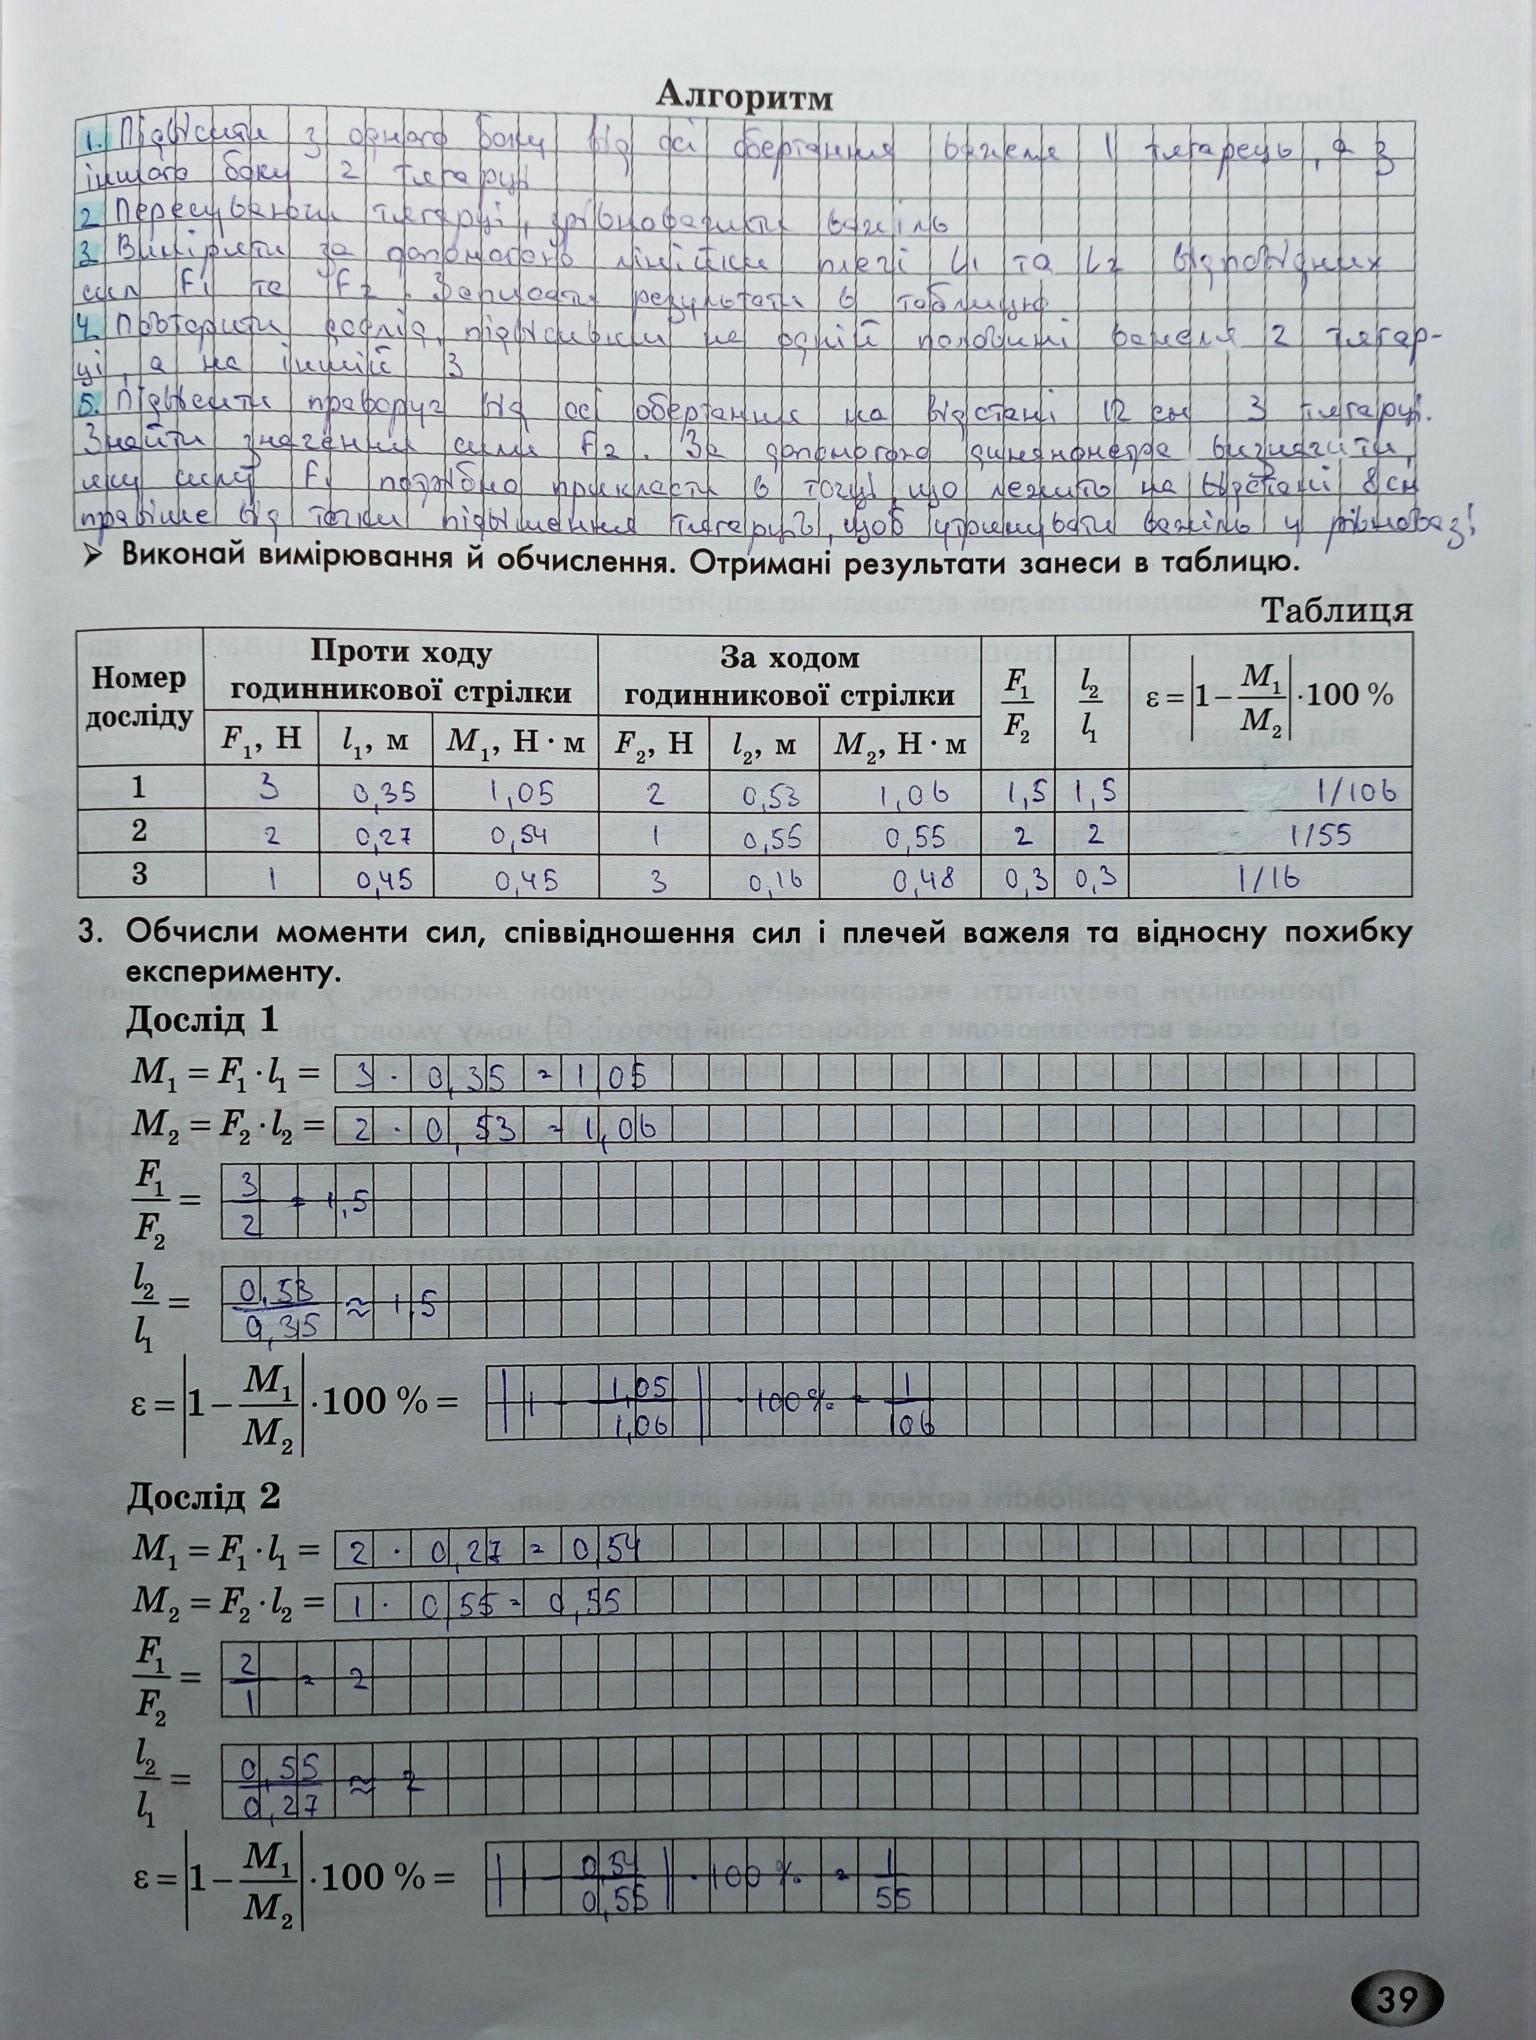 Алгоритм
1. Підвісити з одного боку від осі обертання важеля 1 тягарець, а з
іншого боку 2 тягарці
2 Пересуваючи тягарці, зрівноважити важіль
3. Виміряти за допомогою лінійки плечі L1 та L2 відповідних
сил F1 та F2. Записати результати в таблицю
4. Повторити дослід, підвісивши на одній половині важеля 2 тягар-
ці, а на іншій 3
5. Підвісити праворуч від осі обертання на відстані 12 см 3 тягарці.
Знайти значення сили F2. За допомогою динамометра визначити,
яку силу F1 потрібно прикласти в точці, що лежить на відстані 8 см
правіше від точки підвішення тягарців, щоб утримувати важіль у рівновазі
➤ Виконай вимірювання й обчислення. Отримані результати занеси в таблицю.
Таблиця
Номер досліду | Проти ходу годинникової стрілки | За ходом годинникової стрілки | F₁/F₂ | l₂/l₁ | ε = |1 − M₁/M₂| · 100 %
F₁, Н | l₁, м | M₁, Н · м | F₂, Н | l₂, м | M₂, Н · м
1 | 3 | 0,35 | 1,05 | 2 | 0,53 | 1,06 | 1,5 | 1,5 | 1/106
2 | 2 | 0,27 | 0,54 | 1 | 0,55 | 0,55 | 2 | 2 | 1/55
3 | 1 | 0,45 | 0,45 | 3 | 0,16 | 0,48 | 0,3 | 0,3 | 1/16
3. Обчисли моменти сил, співвідношення сил і плечей важеля та відносну похибку
експерименту.
Дослід 1
M₁ = F₁ · l₁ = 3 · 0,35 = 1,05
M₂ = F₂ · l₂ = 2 · 0,53 = 1,06
F₁/F₂ = 3/2 = 1,5
l₂/l₁ = 0,53/0,35 ≈ 1,5
ε = |1 − M₁/M₂| · 100 % = |1 − 1,05/1,06| · 100% = 1/106
Дослід 2
M₁ = F₁ · l₁ = 2 · 0,27 = 0,54
M₂ = F₂ · l₂ = 1 · 0,55 = 0,55
F₁/F₂ = 2/1 = 2
l₂/l₁ = 0,55/0,27 ≈ 2
ε = |1 − M₁/M₂| · 100 % = |1 − 0,54/0,55| · 100 % = 1/55
39